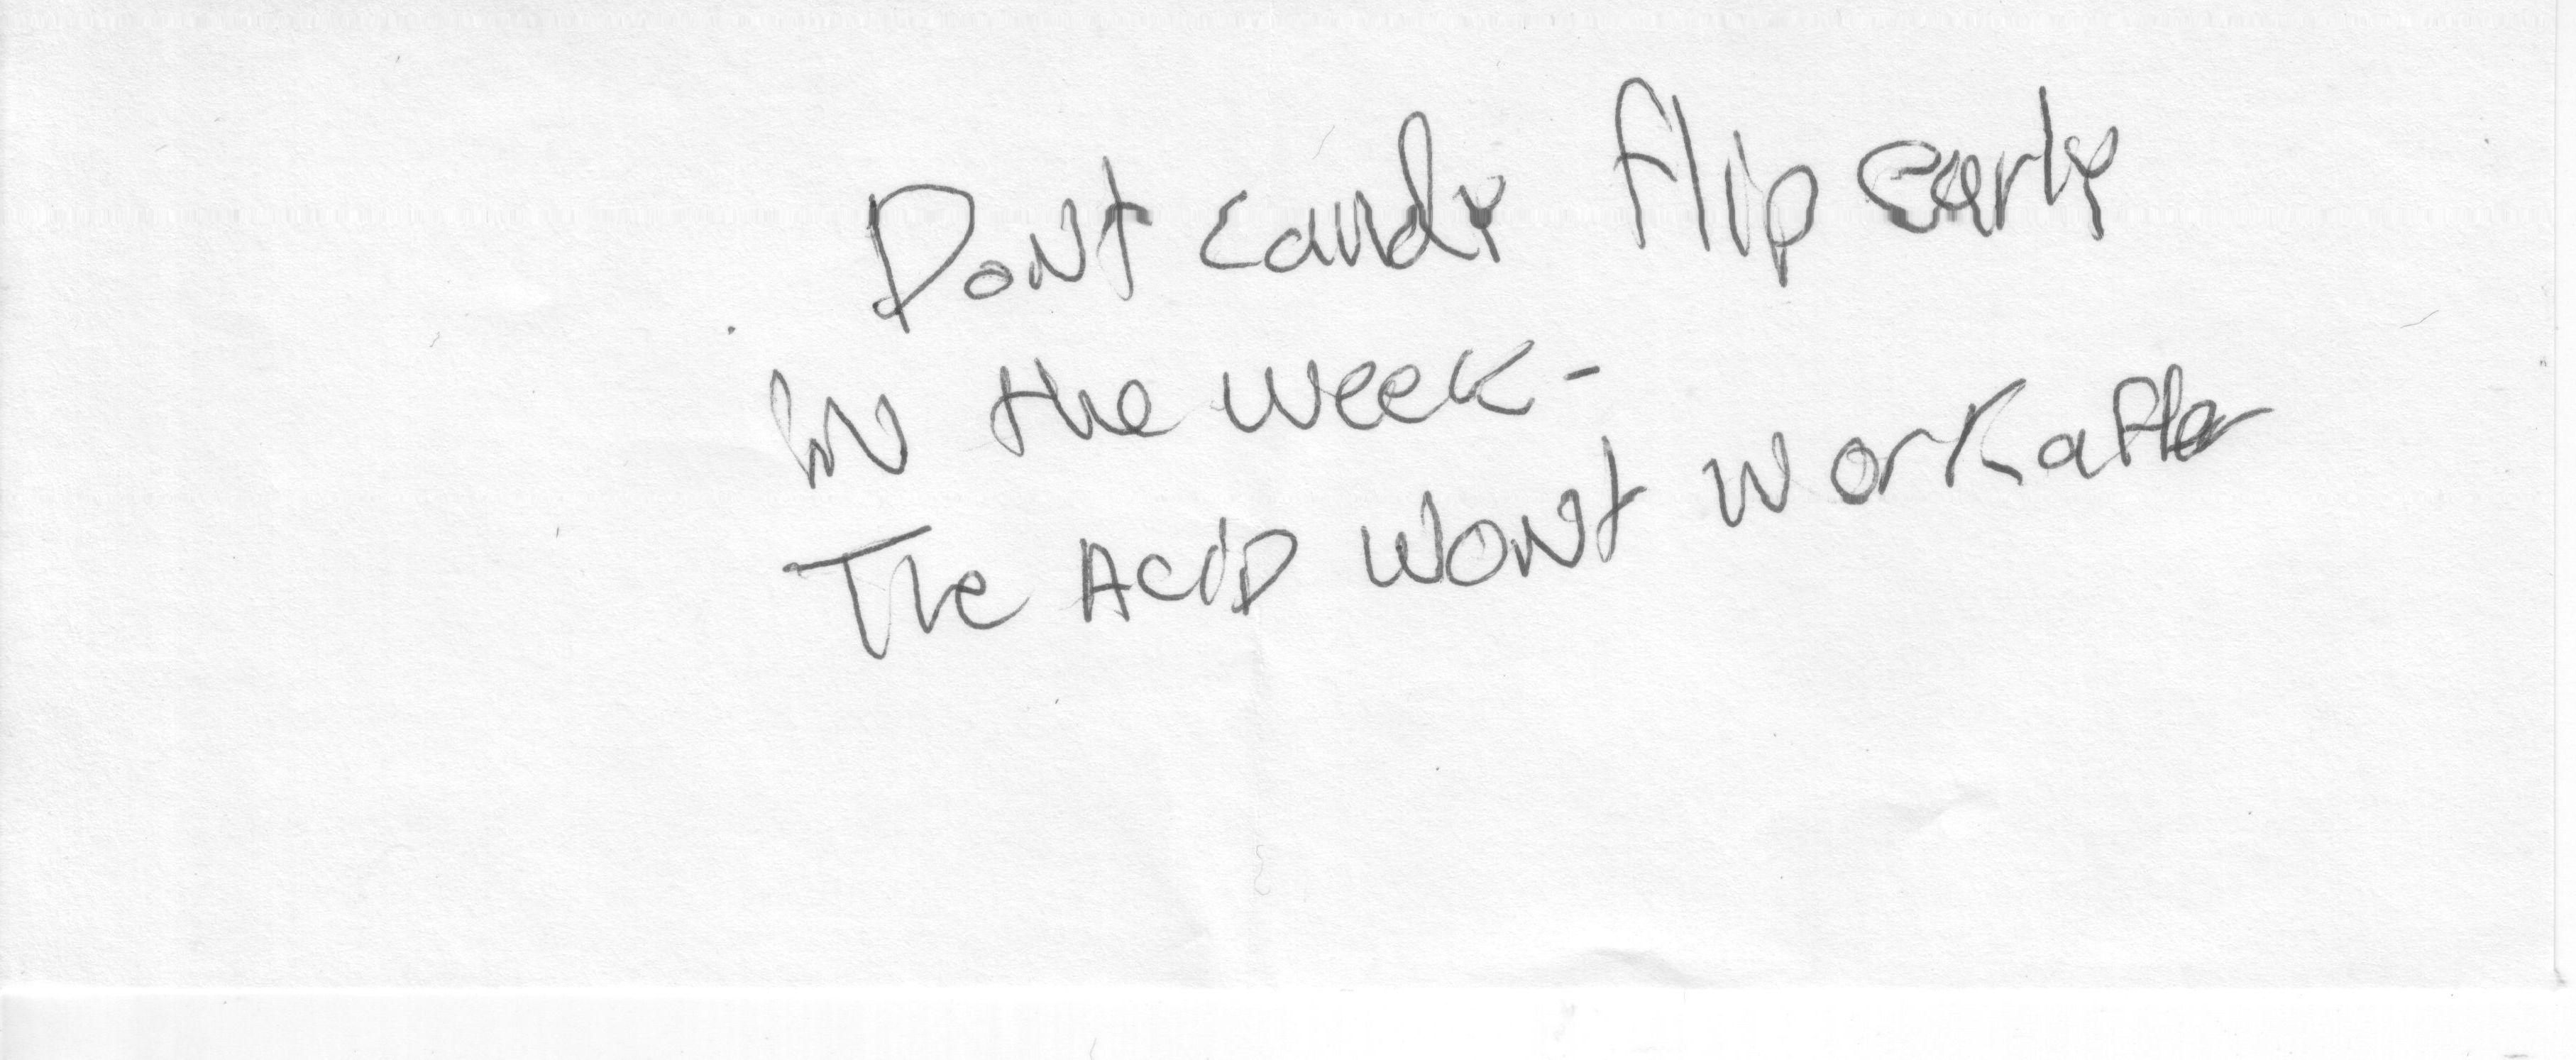 Dont candy flip early
in the week -
The Acid wont work after